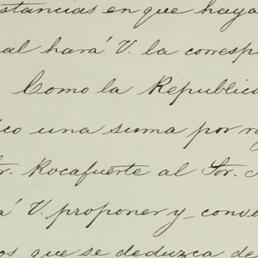 stancias en que haya
al hará V. la corresp
Como la Republica
ico una suma por ra
r. Rocafuerte al Sor.
á V. proponer y conve
os que se deduzca de